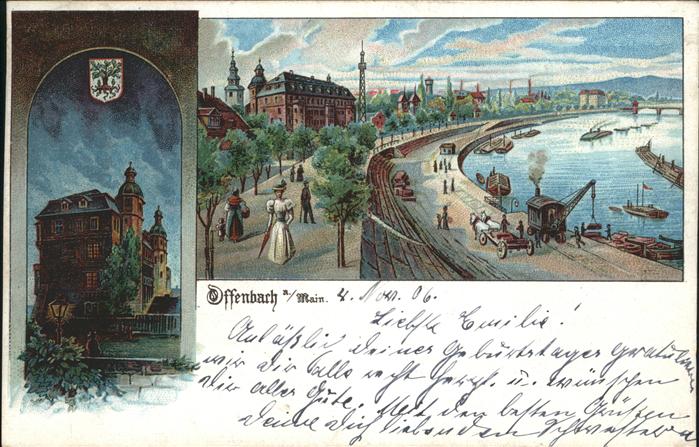 Offenbach a/Main. 4. Nov. 06.
Liebste Emilie!
Anläßlich Deiner Geburtstages gratulieren
wir Dir alle recht herzl. u. wünschen
Dir alles Gute. Mit den besten Grüßen
Deine Dich liebenden Schwestern